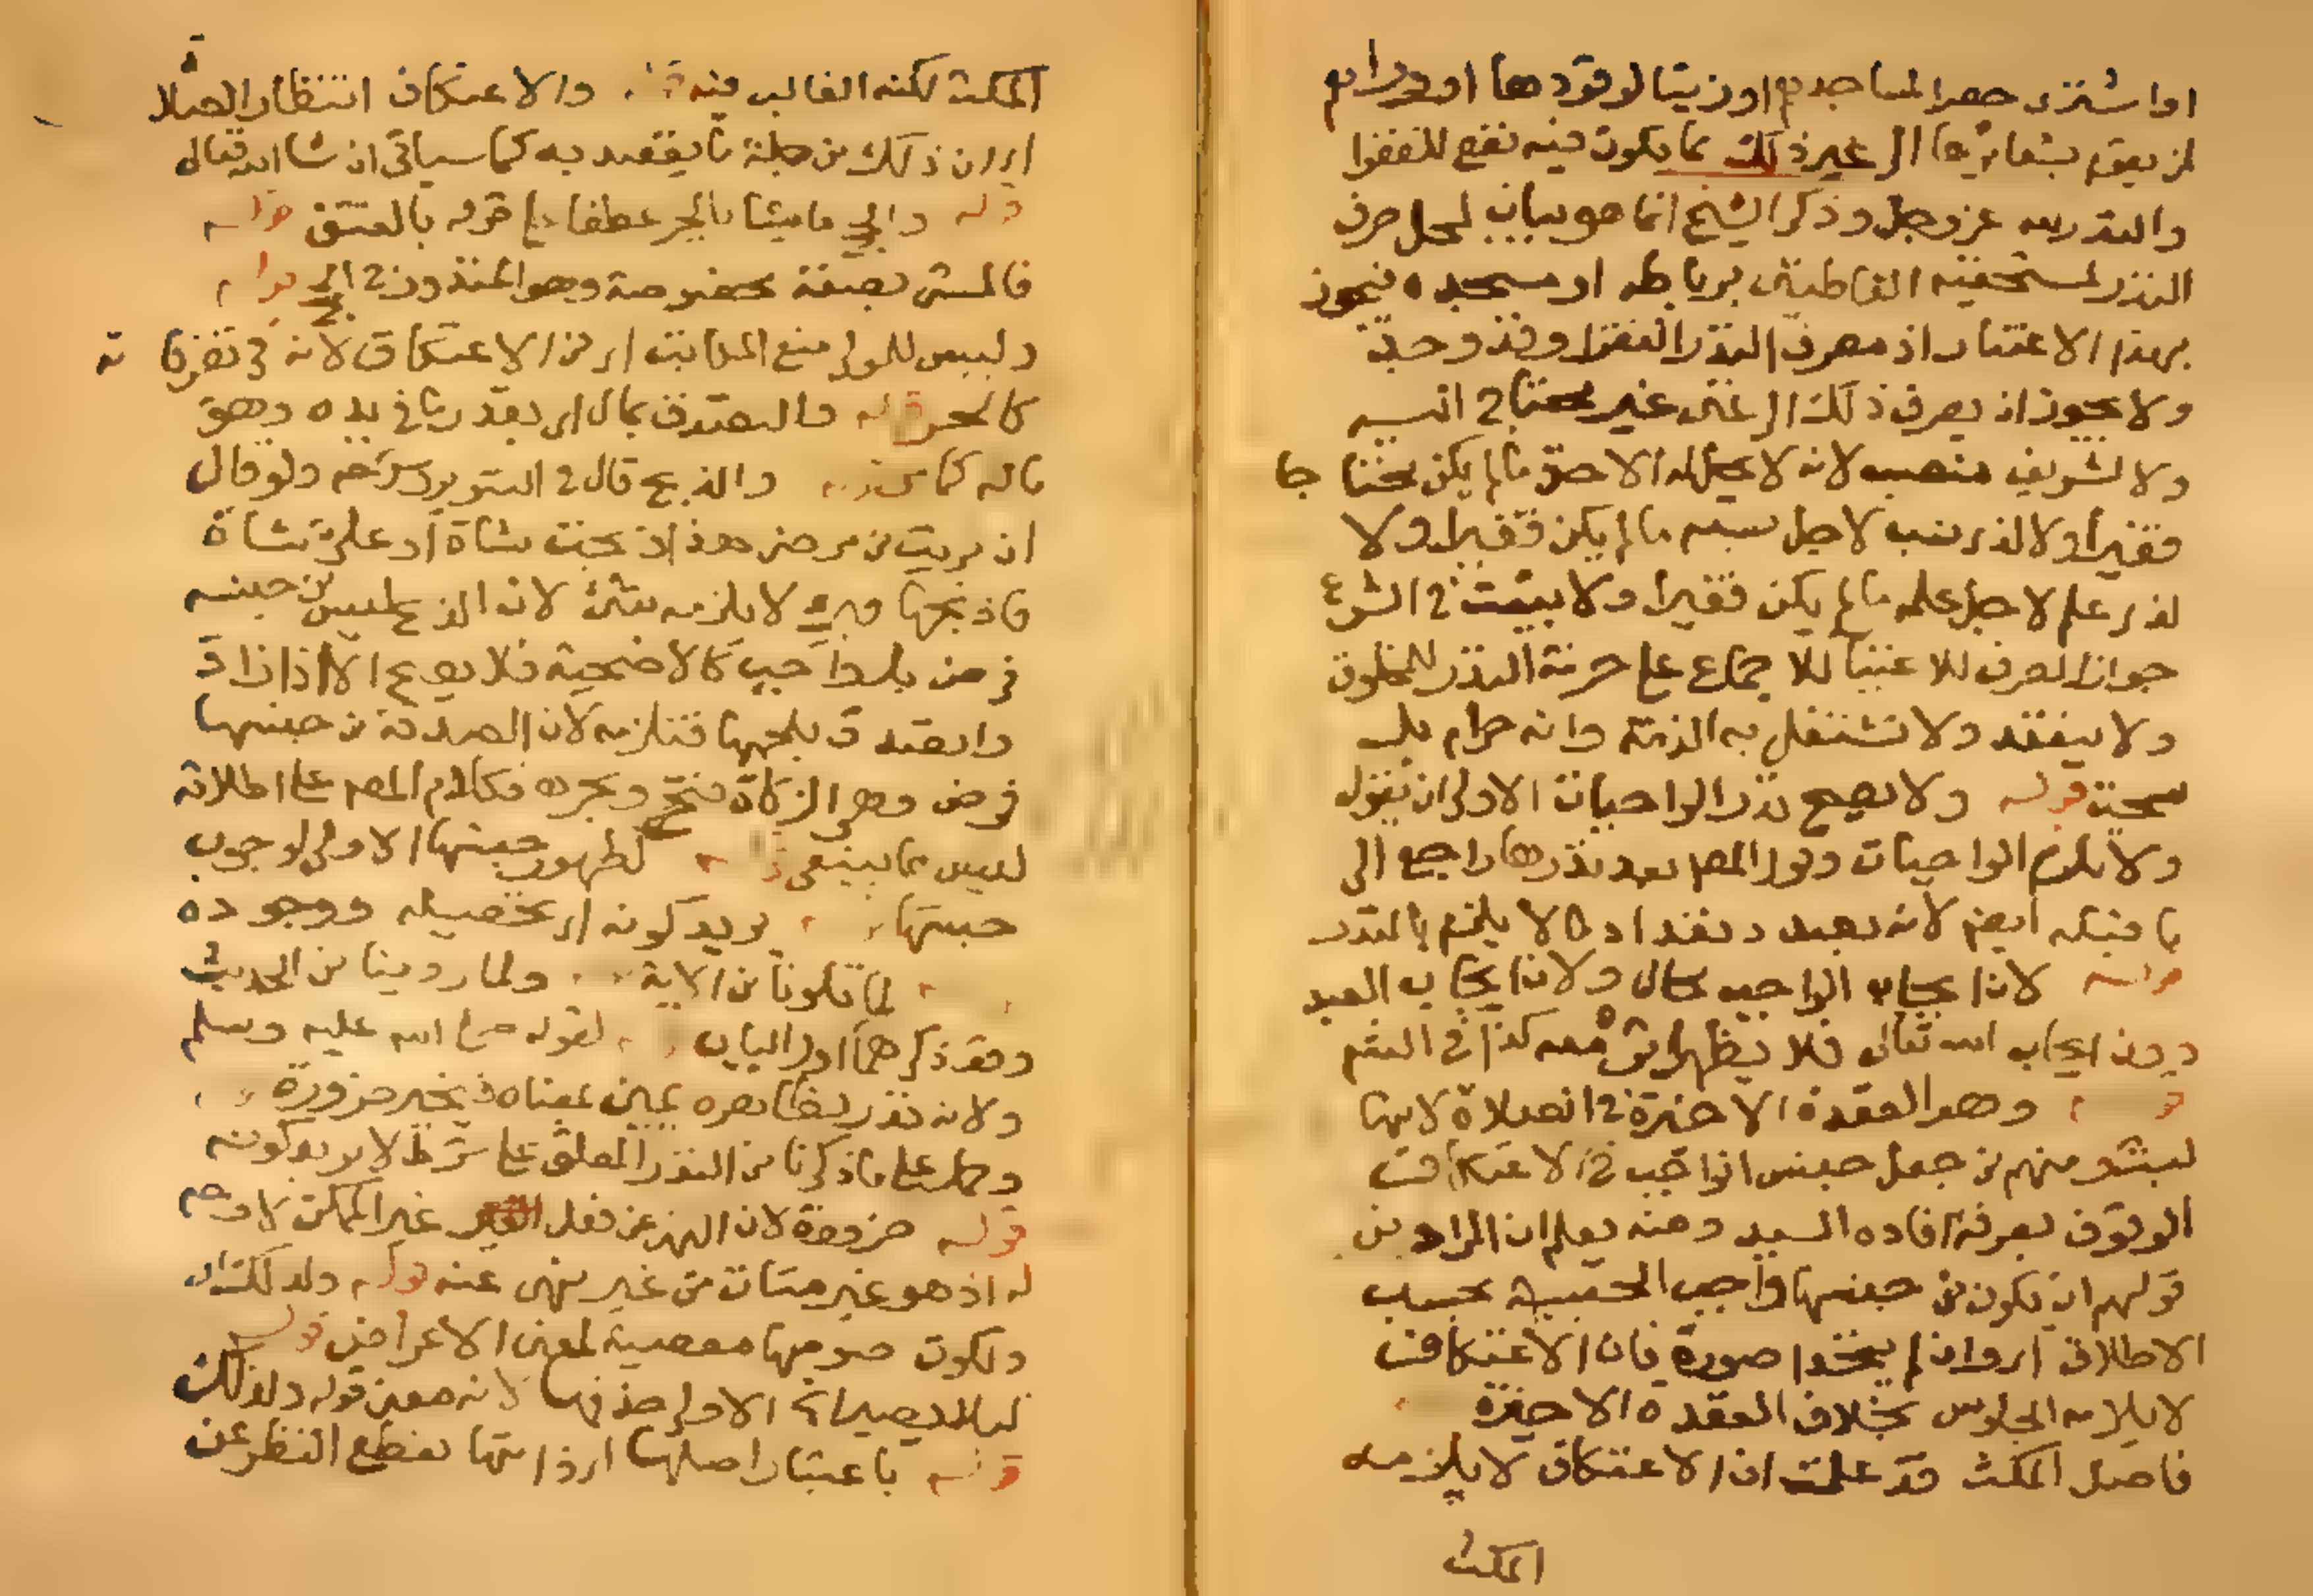 او اشترى حصرا لمساجدهم او زيتا لوقودها او دراهم
لمن يقوم بشعائرها الى غير ذلك مما يكون فيه نفع للفقرا
والنذر لله عز وجل وذكر الشيخ انما هو بيان لمحل صرف
النذر لمستحقيه القاطنين برباطه او مسجده فيجوز
بهذا الاعتبار اذ مصرف النذر الفقرا وقد وجد
ولا يجوز ان يصرف ذلك الى غنى غير محتاج اليه
ولا لشريف منصب لانه لا يحل له الاخذ ما لم يكن محتاجا
فقيرا ولا لذى نسب لاجل نسبه ما لم يكن فقيرا ولا
لذى علم لاجل علمه ما لم يكن فقيرا ولا يثبت فى الشرع
جواز الصرف للاغنيا للاجماع على حرمة النذر للمخلوق
ولا ينعقد ولا تشتغل به الذمة وانه حرام بل
سحت قوله ولا يصح نذر الواجبات الاولى ان يقول
ولا يلزم الواجبات وقول المص بعد نذرها راجع الى
ما قبله ايضا لانه يصير
قوله لان ايجاب الواجب محال ولان ايجاب العبد
دون ايجاب الله تعالى فلا يظهر اثره معه كذا فى الشرح
قوله وهو القعدة الاخيرة فى الصلاة لانها
لبث ومنهم من جعل جنس الواجب فى الاعتكاف
الوقوف بعرفة افاده السيد ومنه يعلم ان المراد من
قولهم ان يكون من جنسها واجب الجنسية بحسب
الاطلاق اى وان لم يتحدا صورة فان الاعتكاف
لا يلازمه الجلوس بخلاف القعدة الاخيرة
فاصل المكث قد علمت ان الاعتكاف لا يلازمه
المكث
المكث لكنه الغالب فيه قوله والاعتكاف انتظار الصلاة
اى لان ذلك من جملة ما يقصد به كما سياتى ان شا الله تعالى
قوله والحج ماشيا بالجر عطفا على قوله بالعتق قوله
فالمشى بصفة مخصوصة وهو المنذور فى الحج قوله
وليس للمولى منع المكاتب اى من الاعتكاف لانه فى تصرفاته
كالحر قوله والتصدق بمال اى بقدر ما فى يده وهو
ماله كما قوله والذبح قال فى التنوير وشرحه ولو قال
ان بريت من مرضى هذا ذبحت شاة او على شاة
فاذبحها فبرئ لا يلزمه شئ لان الذبح ليس من جنسه
فرض بل واجب كالاضحية فلا يصح الا اذا زاد
واتصدق بلحمها فتلزمه لان الصدقة من جنسها
فرض وهى الزكاة فتح وبحر فكلام المص على اطلاقه
ليس مما ينبغى قوله لظهور جنسها الاولى لوجوب
جنسها قوله يريد كونه اى تحصيله ووجوده
قوله لما تلونا من الاية قوله ولما روينا من الحديث
وقد ذكرهما اول الباب قوله لقوله صلى الله عليه وسلم
ولانه نذر بظاهره يمين بمعناه فيخير ضرورة
وحمل على ما ذكرنا من النذر المعلق على شرط لا يريد كونه
قوله ضرورة لان النهى عن فعل الغير غير الممكن لا وجه
له اذ هو غير متات من غير نهى عنه قوله ولذلك
وتكون صومها معصية لمعنى الاعراض قوله
الاولى حذفها لانه معنى قوله ولذلك
قوله باعتبار اصلها اى ذاتها بقطع النظر عن